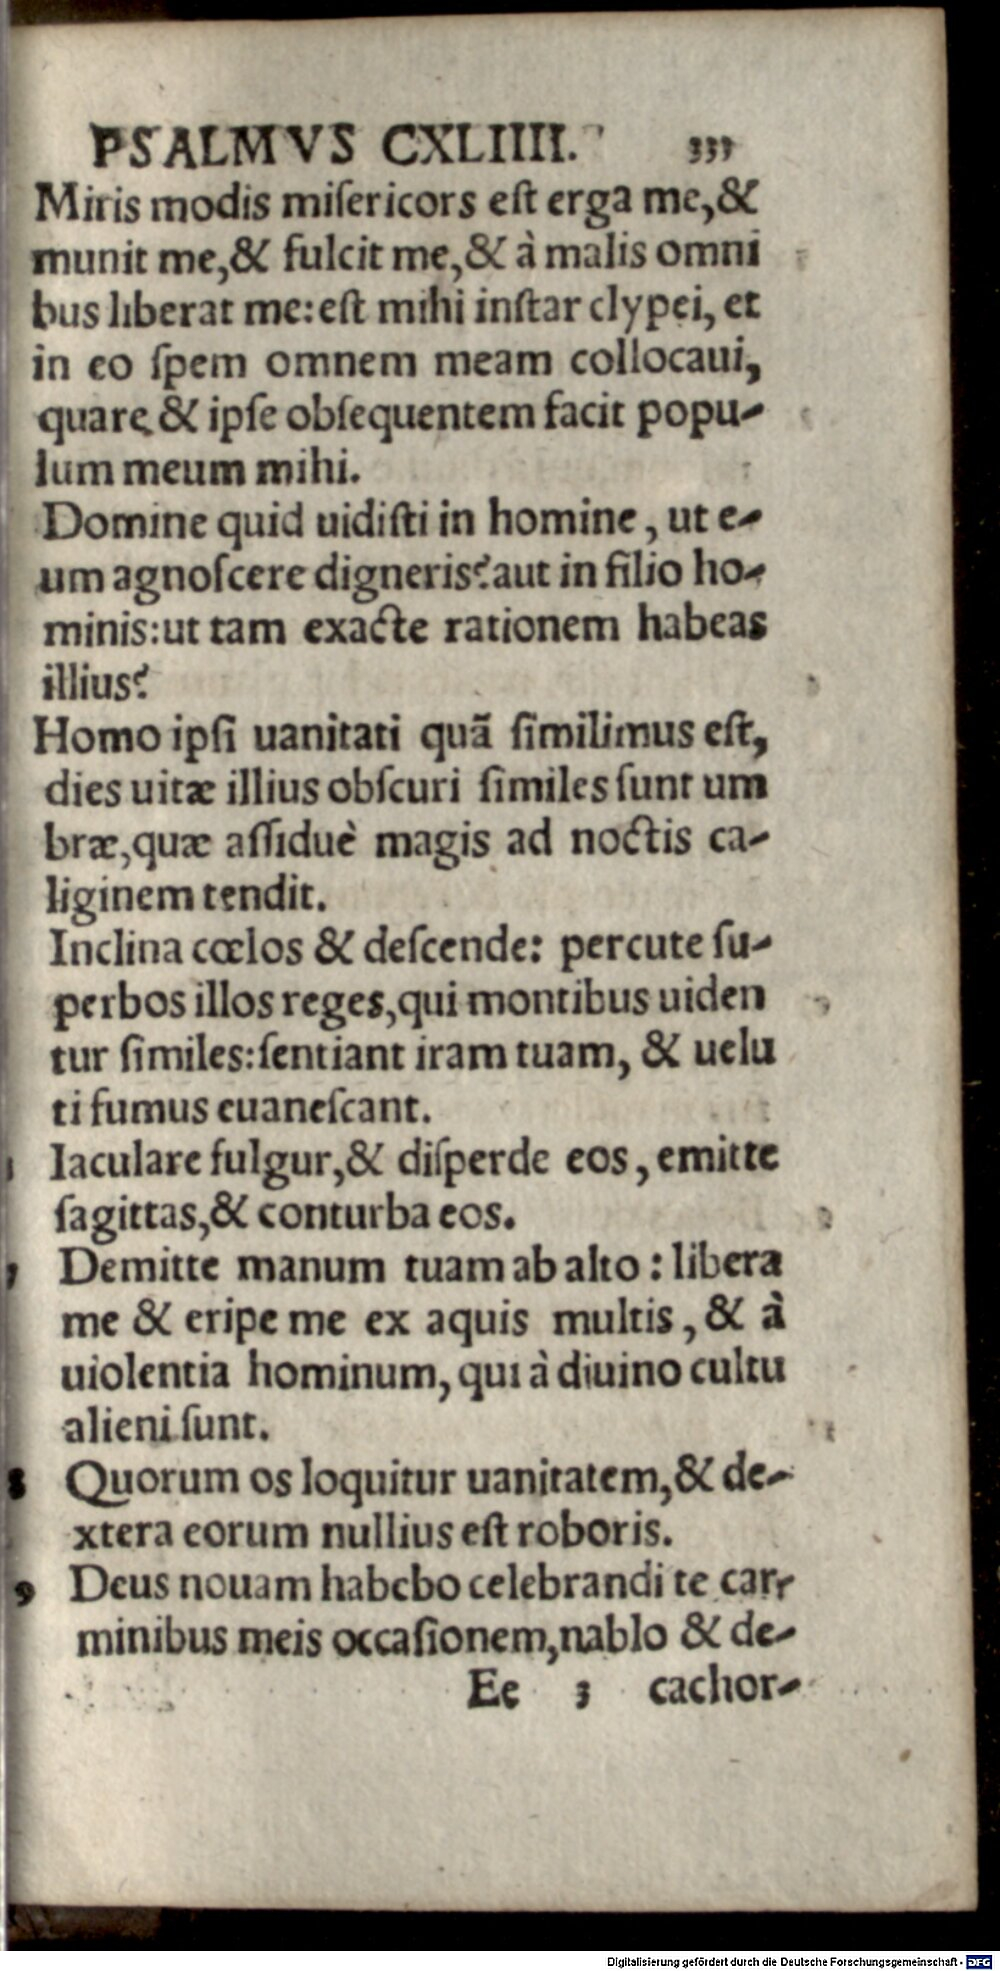 PSALMVS CXLIIII. 333
Miris modis miſericors eſt erga me,&
munit me,& fulcit me,& à malis omni
bus liberat me:eſt mihi inſtar clypei, et
in eo ſpem omnem meam collocaui,
quare & ipſe obſequentem facit popu-
lum meum mihi.
Domine quid uidiſti in homine, ut e-
um agnoſcere digneris?aut in filio ho-
minis:ut tam exacte rationem habeas
illius?
Homo ipſi uanitati quã ſimilimus eſt,
dies uitæ illius obſcuri ſimiles ſunt um
bræ,quæ aſſiduè magis ad noctis ca-
liginem tendit.
Inclina cœlos & deſcende: percute ſu-
perbos illos reges,qui montibus uiden
tur ſimiles:ſentiant iram tuam, & uelu
ti fumus euaneſcant.
Iaculare fulgur,& diſperde eos, emitte
ſagittas,& conturba eos.
7 Demitte manum tuam ab alto: libera
me & eripe me ex aquis multis, & à
uiolentia hominum, qui à diuino cultu
alieni ſunt.
8 Quorum os loquitur uanitatem,& de-
xtera eorum nullius eſt roboris.
9 Deus nouam habebo celebrandi te car-
minibus meis occaſionem,nablo & de-
Ee 3 cachor-
Digitalisierung gefördert durch die Deutsche Forschungsgemeinschaft - DFG